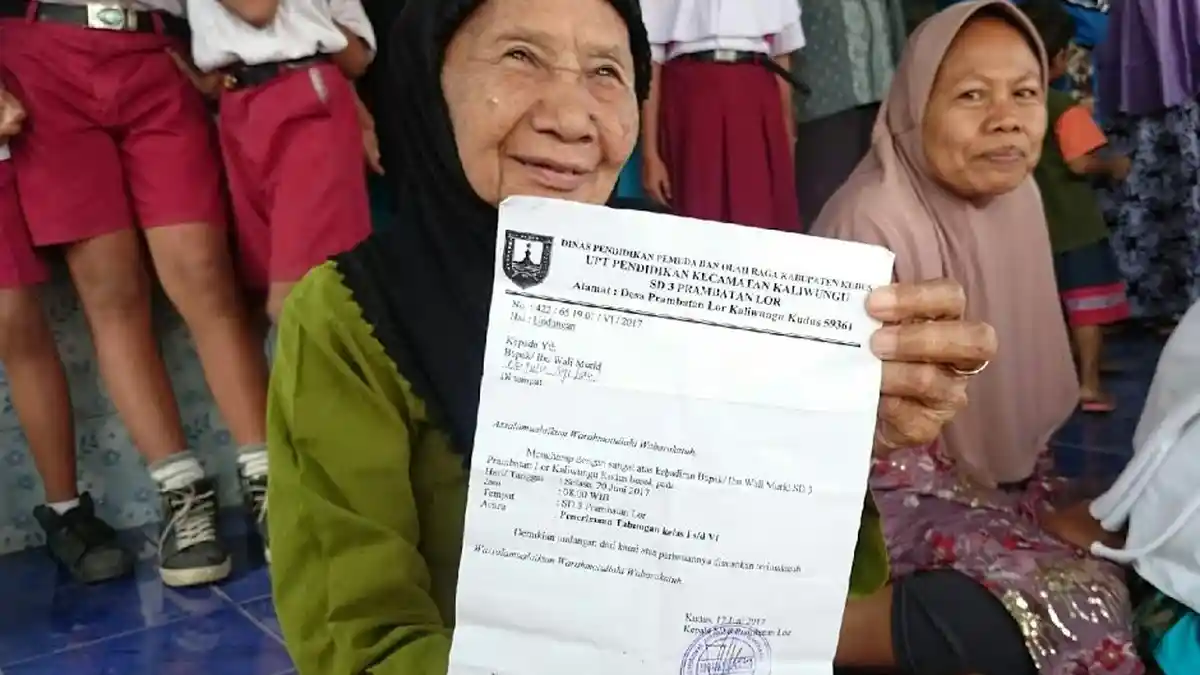 DINAS PENDIDIKAN PEMUDA DAN OLAH RAGA KABUPATEN KUDUS
UPT PENDIDIKAN KECAMATAN KALIWUNGU
SD 3 PRAMBATAN LOR
Alamat : Desa Prambatan Lor Kaliwungu Kudus 59361
No. : 422 / 65 19.01 / VI / 2017
Hal : Undangan
Kepada Yth.
Bapak/ Ibu Wali Murid
Di tempat
Assalamualaikum Warahmatullahi Wabarakatuh
Mengharap dengan sangat atas kehadiran Bapak/ Ibu Wali Murid SD 3
Prambatan Lor Kaliwungu Kudus besok pada
Hari/ Tanggal : Selasa, 20 Juni 2017
Jam : 08.00 WIB
Tempat : SD 3 Prambatan Lor
Acara : Penerimaan Tabungan kelas I s/d VI
Demikian undangan dari kami atas perhatiannya diucapkan terimakasih
Wassalamualaikum Warahmatullahi Wabarakatuh
Kudus, 17 Juni 2017
Kepala SD 3 Prambatan Lor